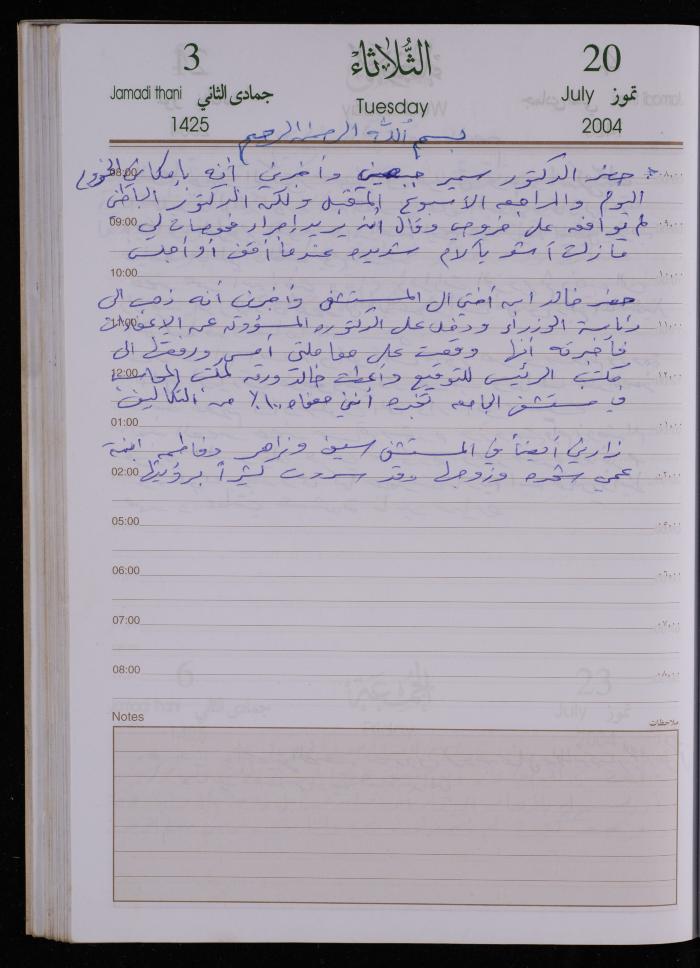 3
الثلاثاء
20
Jamadi thani جمادى الثاني
July تموز
1425
Tuesday
2004
بسم الله الرحمن الرحيم
08:00 حضر الدكتور سمير وأخبرني أنه بإمكاني الخروج ٠٨:٠٠
اليوم والمراجعه الأسبوع المقبل ولكن الدكتور الباطني
09:00 لم يوافقه على خروجي وقال أنه يريد إجراء فحوصات لي ٠٩:٠٠
مازلت أشعر بآلام شديده عندما أقف أو أجلس
10:00 ١٠:٠٠
حضر خالد ابن أختي الى المستشفى وأخبرني أنه ذهب الى
11:00 رئاسة الوزراء ودخل على الدكتوره المسؤوله عن الإعفاءات ١١:٠٠
فأخبرته أنها وقعت على معاملتي أمس ورفعتها الى
12:00 مكتب الرئيس للتوقيع وأعطت خالد ورقه لمكتب المحاسبة ١٢:٠٠
في مستشفى الجامعه تخبره أنني معفاه ١٠٠٪ من التكاليف
01:00 ٠١:٠٠
زارني أيضاً في المستشفى سيف وزاهر وفاطمه ابنة
02:00 عمي وزوجها وقد سررت كثيراً برؤيتها ٠٢:٠٠
05:00
06:00 ٠٦:٠٠
07:00 ٠٧:٠٠
08:00 ٠٨:٠٠
Notes ملاحظات